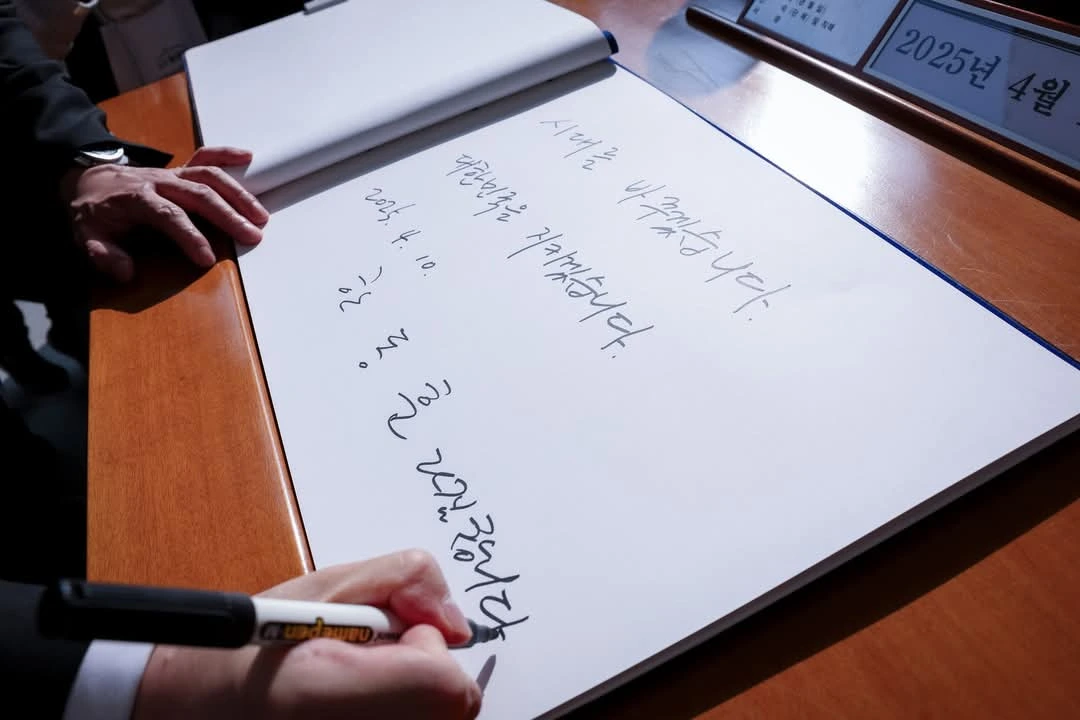 2025년 4월
시대를 바꾸겠습니다.
대한민국을 지키겠습니다.
2025. 4. 10.
한 동 훈
namepen